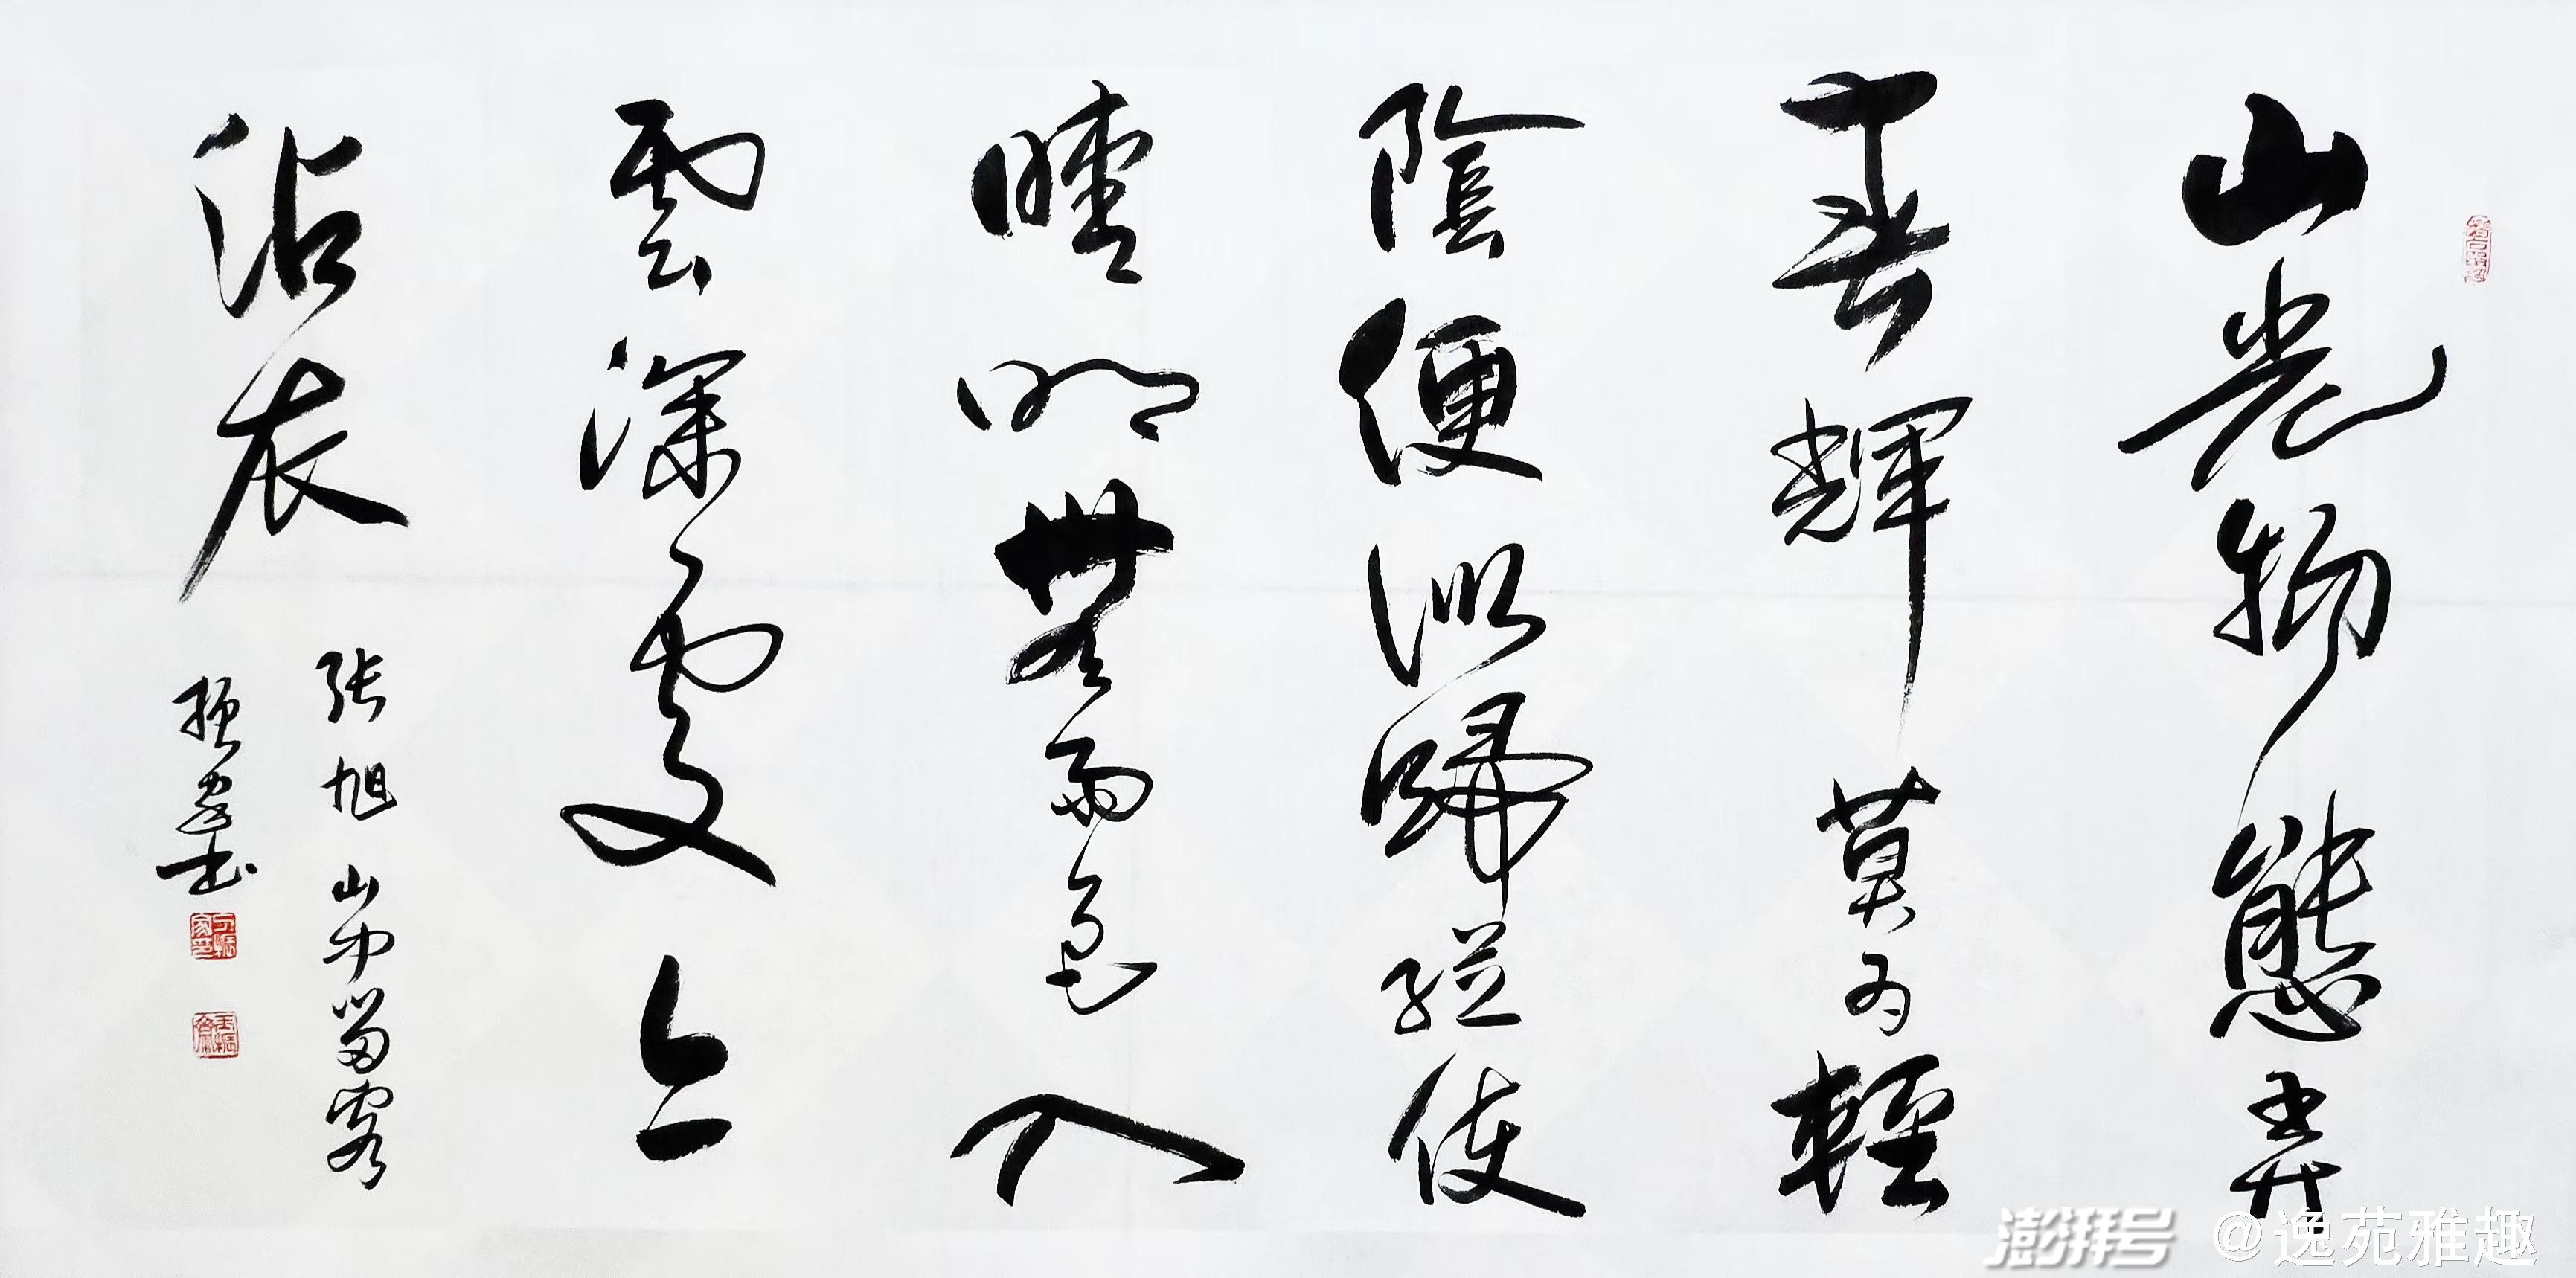 山光物態弄
春輝莫為輕
陰便擬歸縱使
晴明無雨色入
雲深處亦
沾衣
張旭山中留客
振家書
澎湃号 @逸苑雅趣